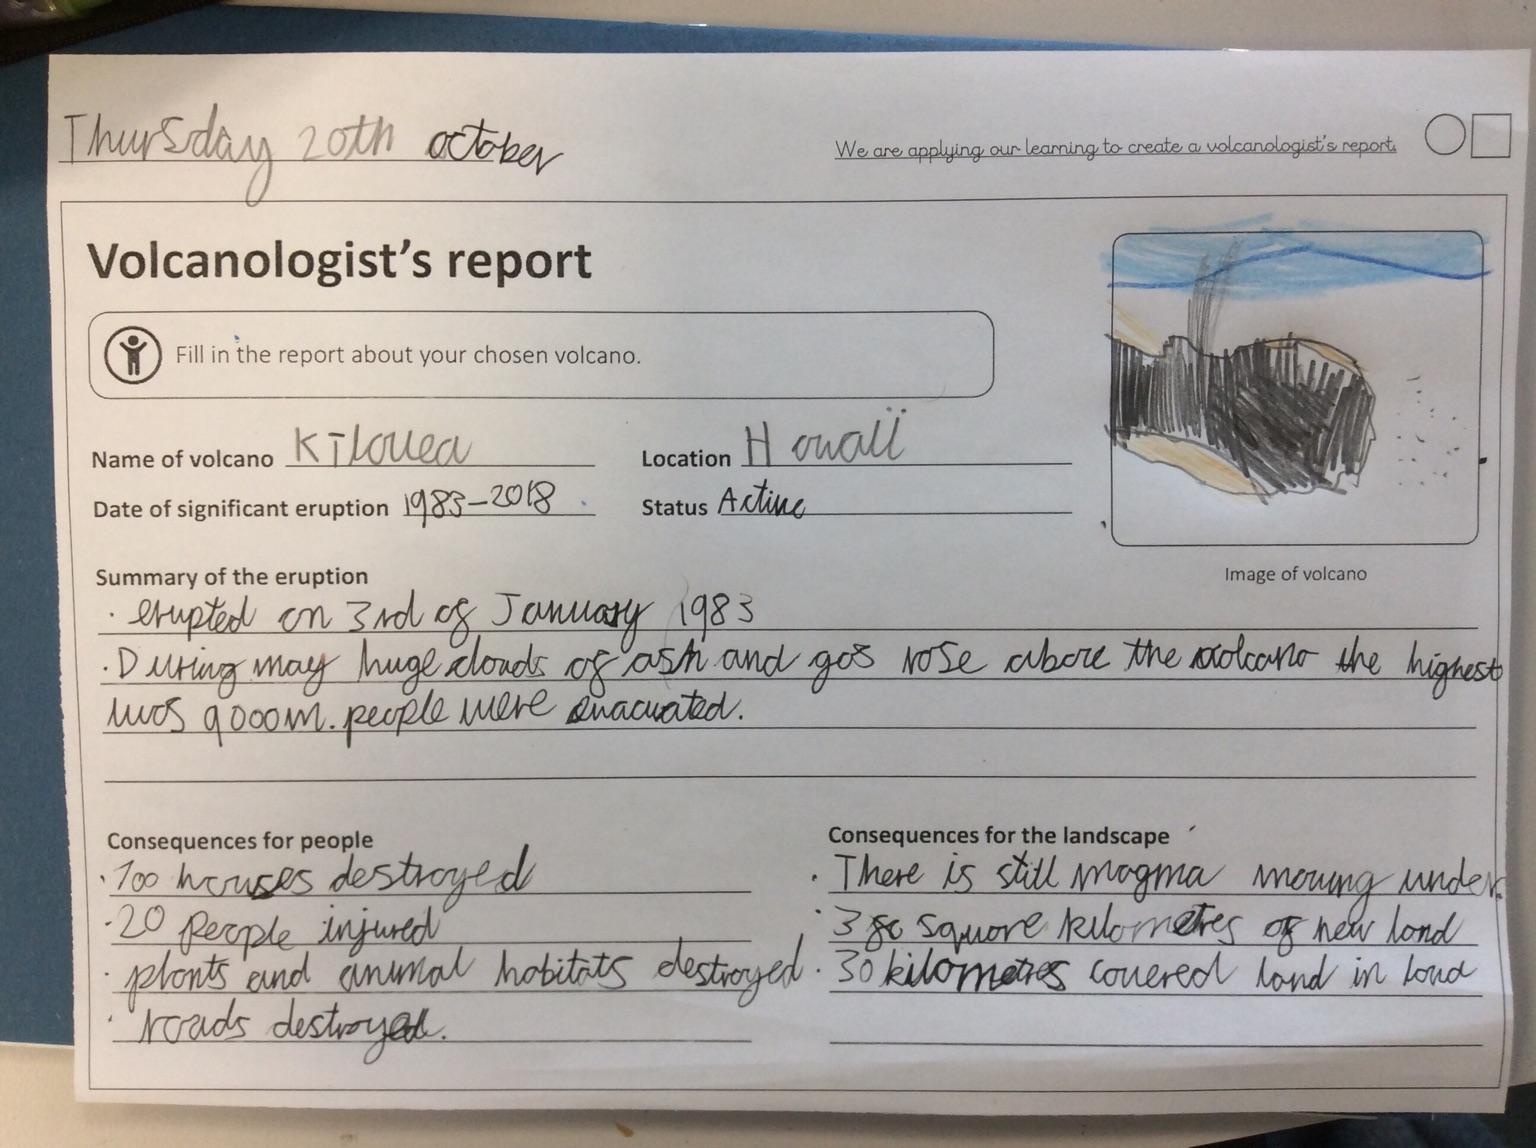 Thursday 20th october
We are applying our learning to create a volcanologist's report.
Volcanologist's report
Fill in the report about your chosen volcano.
Name of volcano Kīlauea
Location Hawaii
Date of significant eruption 1983-2018
Status Active
Image of volcano
Summary of the eruption
· erupted on 3rd of January 1983
· During may huge clouds of ash and gas rose above the volcano the highest
was 9000m. people were evacuated.
Consequences for people
· 700 houses destroyed
· 20 people injured
· plants and animal habitats destroyed
· roads destroyed.
Consequences for the landscape
· There is still magma moving under.
· 3 square kilometres of new land
· 30 kilometres covered land in